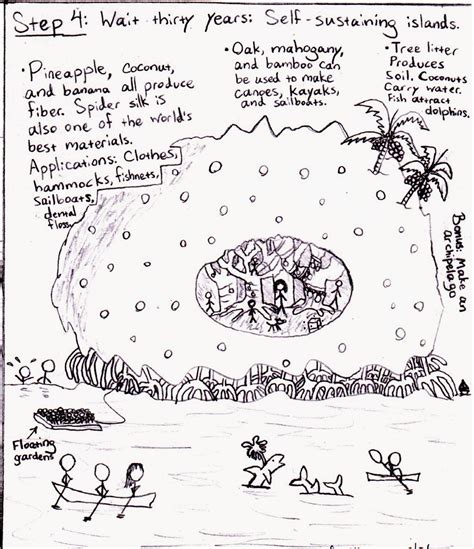 Step 4: Wait thirty years: Self-sustaining islands.
• Pineapple, coconut,
and banana all produce
fiber. Spider silk is
also one of the world's
best materials.
Applications: Clothes,
hammocks, fishnets,
sailboats,
dental
floss
• Oak, mahogany,
and bamboo can
be used to make
canoes, kayaks,
and sailboats.
• Tree litter
Produces
Soil. Coconuts
Carry water.
Fish attract
dolphins.
Bonus: Make an
archipelago
Floating
gardens